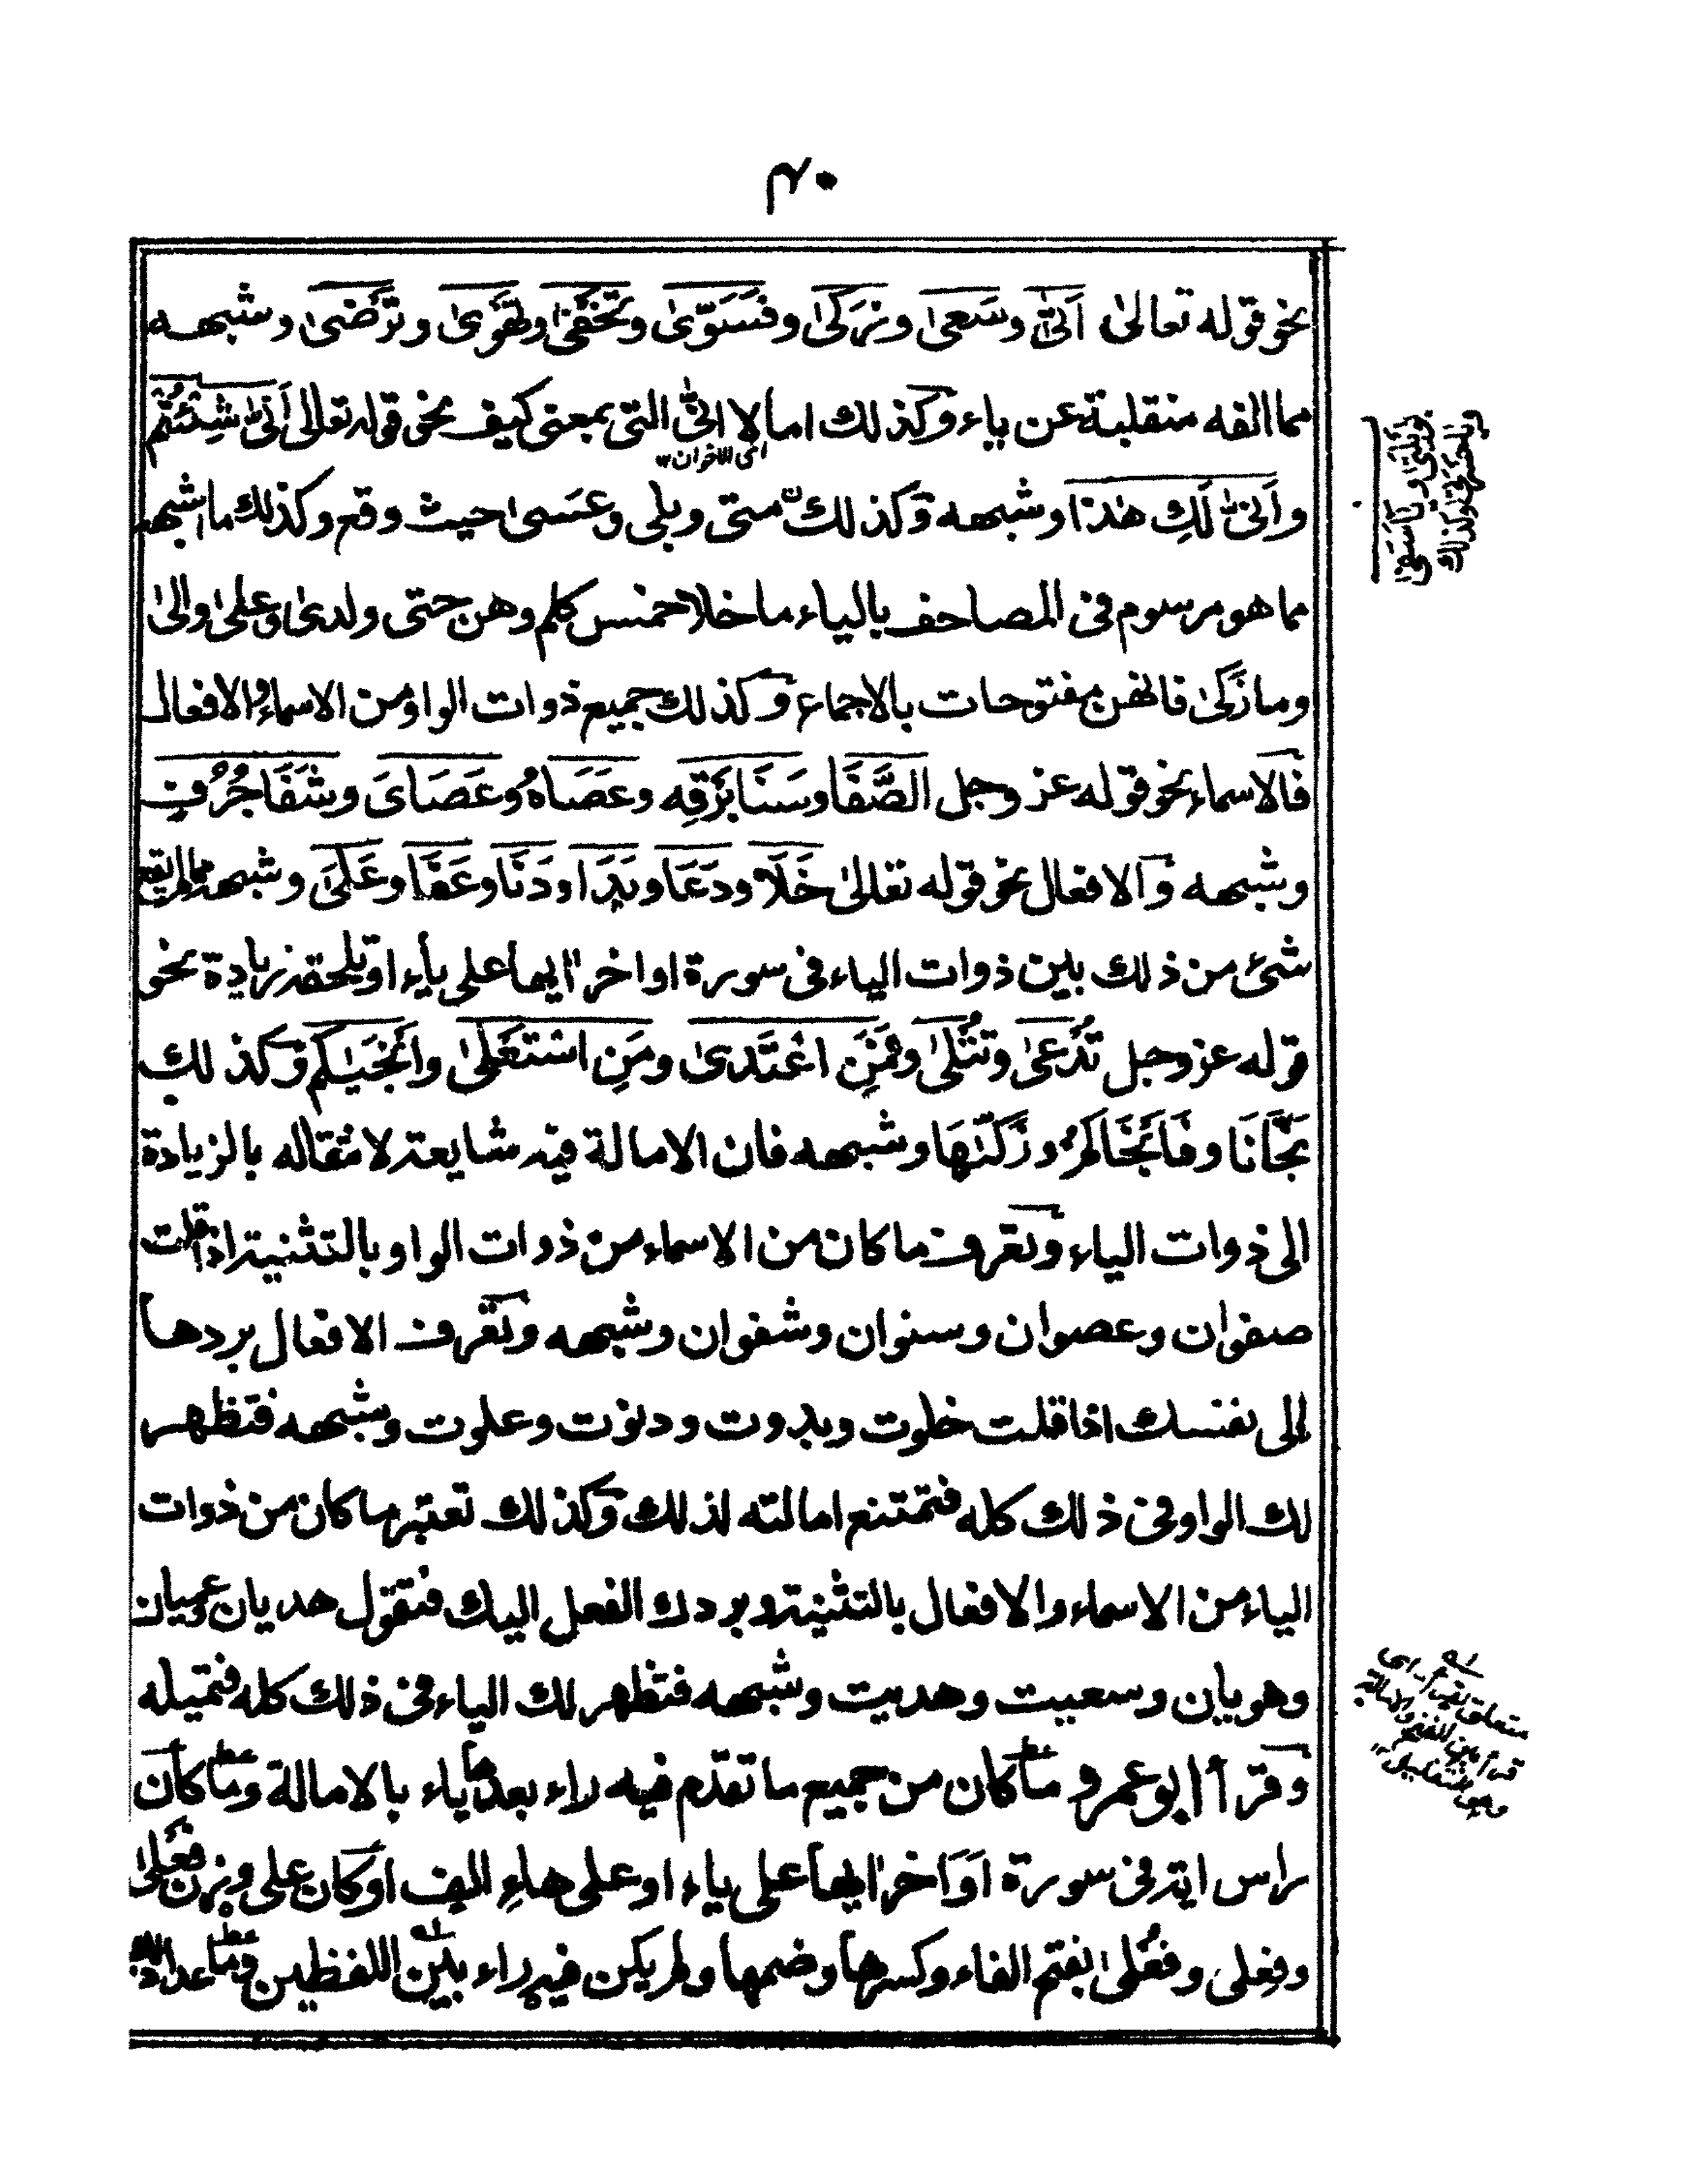 ۴۰
نحو قوله تعالىٰ اَتىٰ وسَعىٰ وزَكىٰ وفَسَوّىٰ وتَخْفىٰ وتَهْوىٰ وتَرْضىٰ وشبهه
مما الفه منقلبة عن ياء وكذلك امالا انّىٰ التى بمعنى كيف نحو قوله تعالىٰ اَنّىٰ شِئْتُمْ
اى الاخوان
واَنّىٰ لَكِ هٰذا وشبهه وكذلك متى وبلى وعَسىٰ حيث وقع وكذلك ما اشبهه
مما هو مرسوم فى المصاحف بالياء ما خلا خمس كلم وهن حتى ولدىٰ وعلىٰ والىٰ
وما زَكىٰ فانهن مفتوحات بالاجماع وكذلك جميع ذوات الواو من الاسماء والافعال
فالاسماء نحو قوله عز وجل الصَّفَا وسَنَا بَرْقِه وعَصَاهُ وعَصَاىَ وشَفَا جُرُفٍ
وشبهه والافعال نحو قوله تعالىٰ خَلَا ودَعَا وبَدَا ودَنَا وعَفَا وعَلَىٰ وشبهه مالم يقع
شئ من ذلك بين ذوات الياء فى سورة اواخر ايها على ياء او تلحقه زيادة نحو
قوله عز وجل تُدْعىٰ وتُتْلىٰ وفَمَنِ اعْتَدىٰ ومَنِ اسْتَعْلىٰ وأَنْجَيٰكم وكذلك
نَجَّانَا وفَأَنْجَاكُمْ وزَكّٰىهَا وشبهه فان الامالة فيه شايعة لانتقاله بالزيادة
الى ذوات الياء وتعرف ما كان من الاسماء من ذوات الواو بالتثنية اذا قلت
صفوان وعصوان وسنوان وشفوان وشبهه وتعرف الافعال بردها
إلى نفسك اذا قلت خلوت وبدوت ودنوت وعلوت وشبهه فتظهر
لك الواو فى ذلك كله فتمتنع امالته لذلك وكذلك تعتبر ما كان من ذوات
الياء من الاسماء والافعال بالتثنية وبردك الفعل اليك فتقول هديان وعميان
وهويان وسعيت وهديت وشبهه فتظهر لك الياء فى ذلك كله فتميله
وقرأ ابو عمرو ما كان من جميع ما تقدّم فيه راء بعدها ياء بالامالة وما كان
راس اية فى سورة اَوَاخر ايها على ياء او على هاءِ الف اَو كان على وزن فَعْلىٰ
وفِعلى وفُعْلىٰ بفتح الفاء وكسرها وضمها ولم يكن فيه راء بين اللفظين وما عدا ذلك